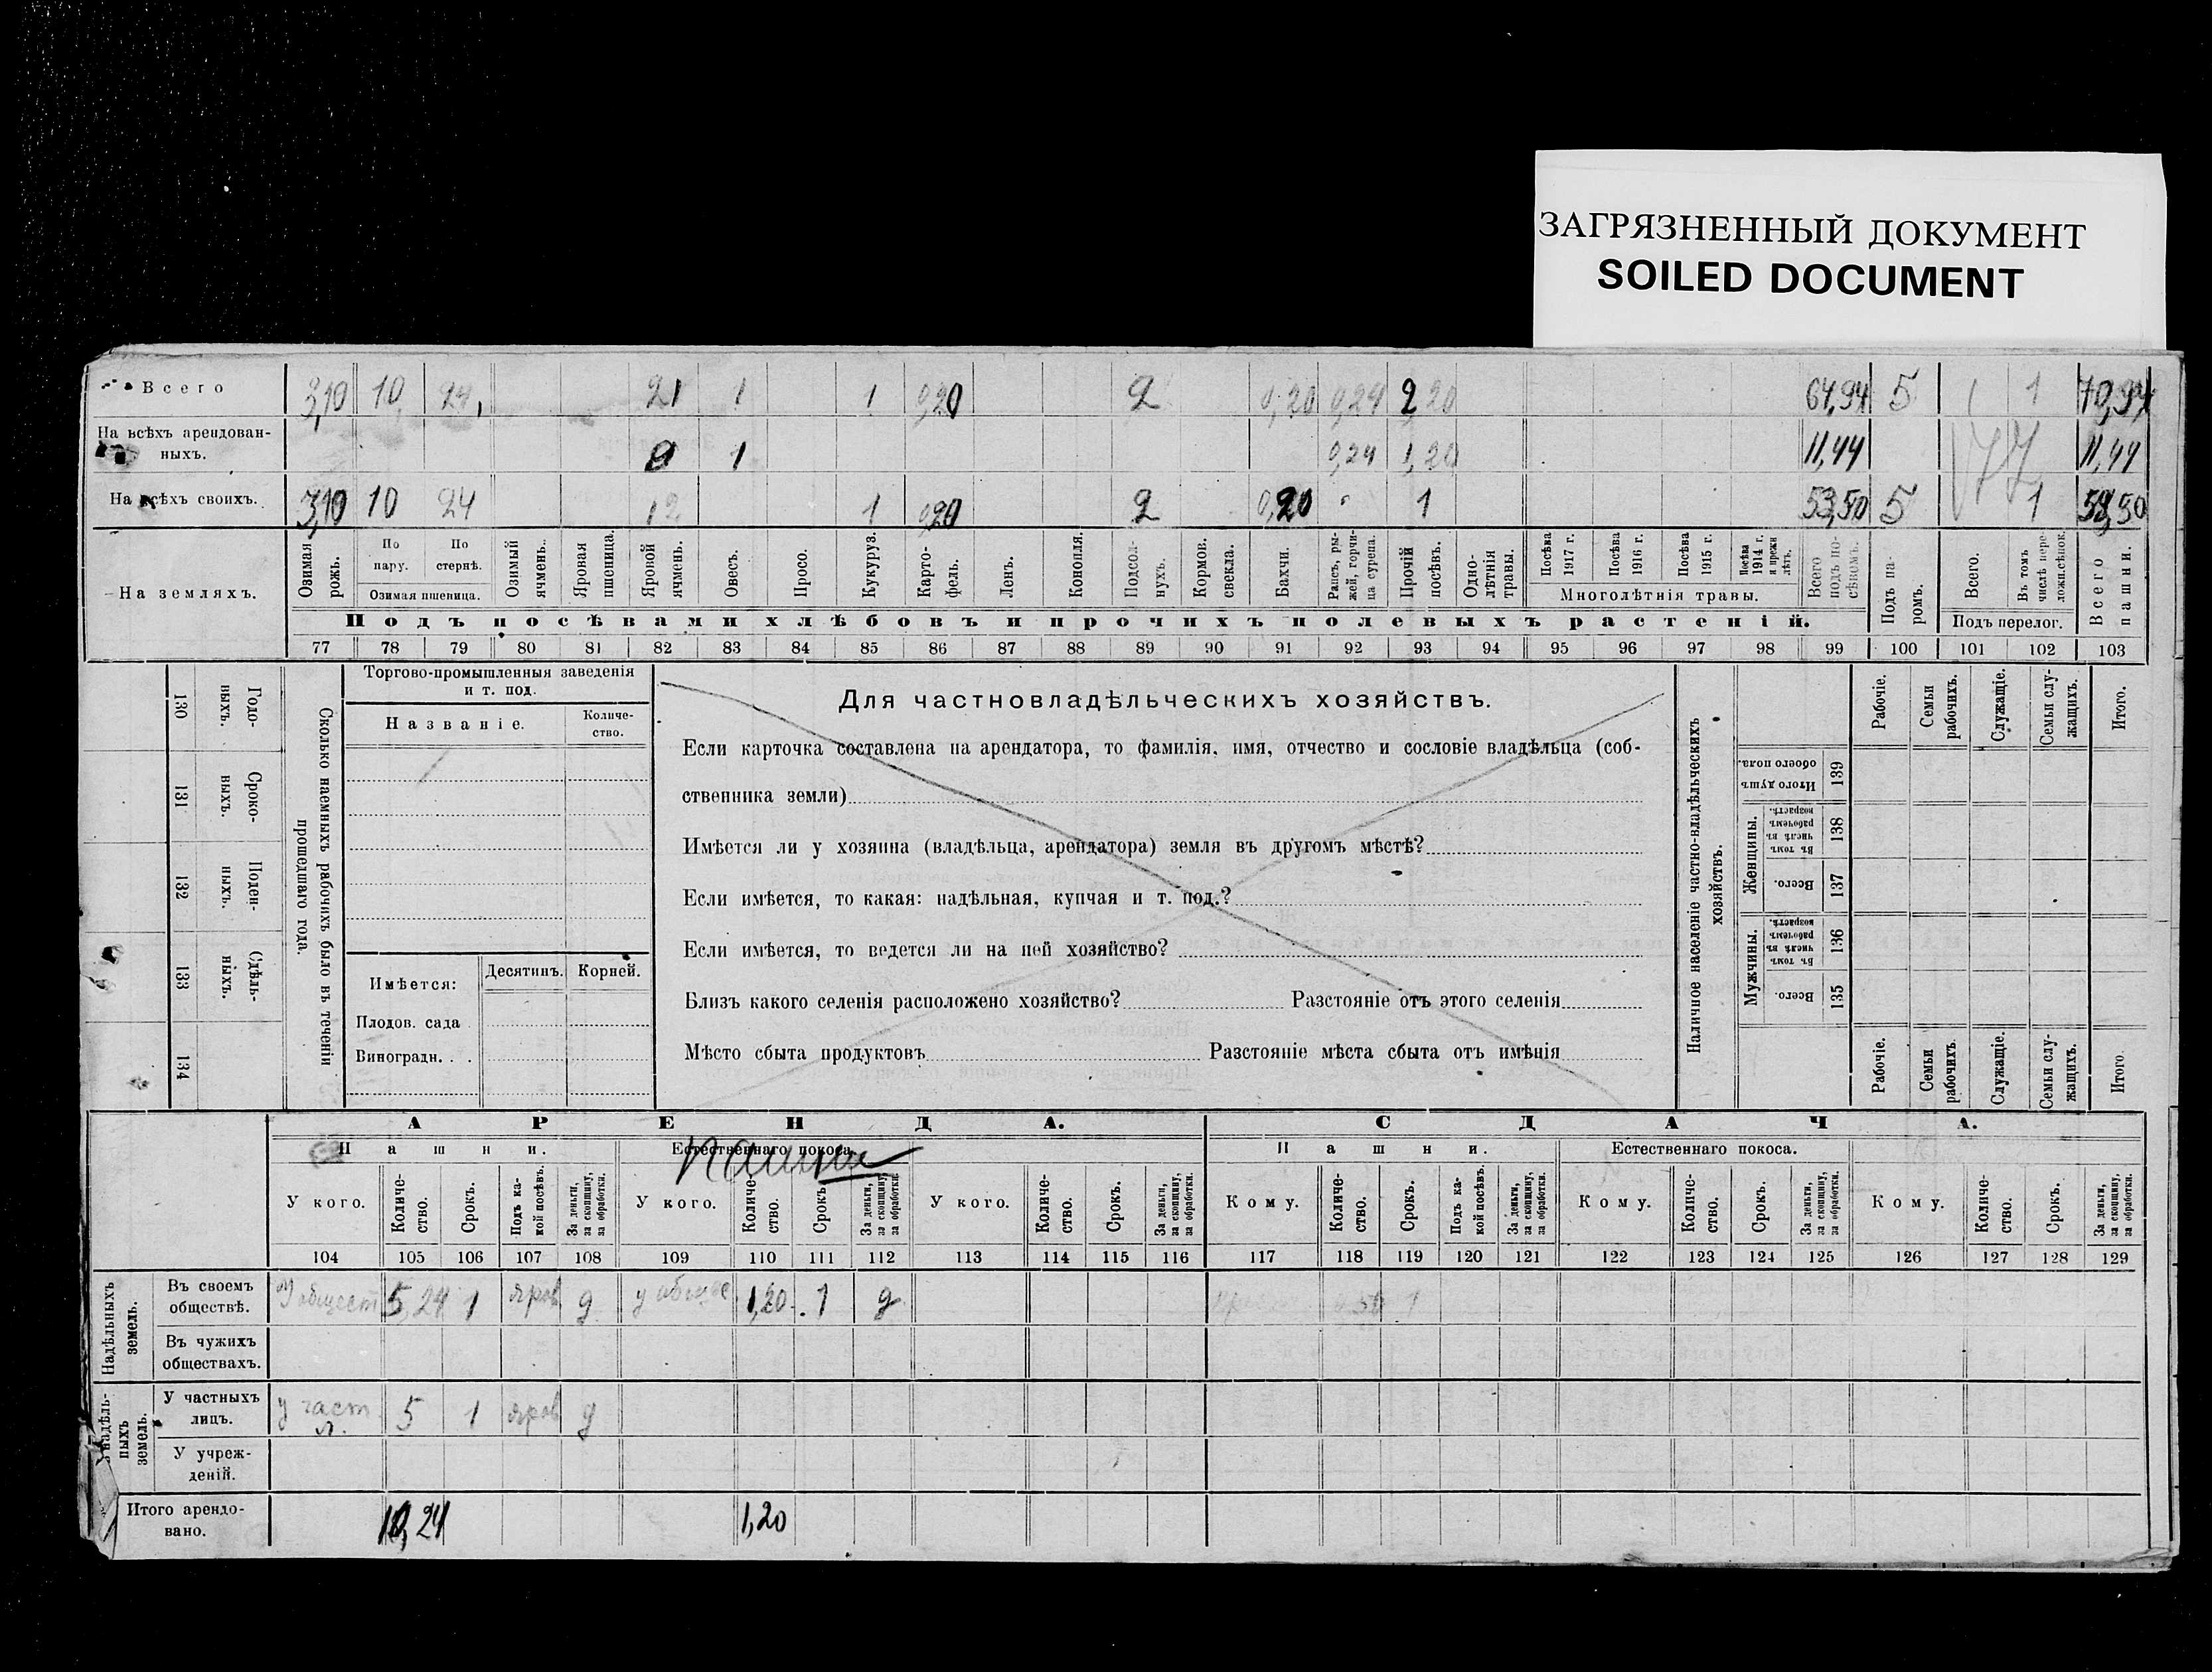 ЗАГРЯЗНЕННЫЙ ДОКУМЕНТ
SOILED DOCUMENT
Всего 3,10 10 24 21 1 1 0,20 2 0,20 0,24 2 20 64,94 5 1 70,94
На всѣхъ арендован-
ныхъ. 9 1 0,24 1,20 11,44 11,44
На всѣхъ своихъ. 3,10 10 24 12 1 0,20 2 0,20 1 53,50 5 1 59,50
На земляхъ.
Озимая рожь.
По пару.
По стернѣ.
Озимая пшеница.
Озимый ячмень.
Яровая пшеница.
Яровой ячмень.
Овесъ.
Просо.
Кукуруз.
Карто-
фель.
Ленъ.
Конопля.
Подсол-
нухъ.
Кормов. свекла.
Бахчи.
Рапсъ, ры-
жей, горчи-
ца сурепа.
Прочій посѣвъ.
Одно-
лѣтнія травы.
Посѣва 1917 г.
Посѣва 1916 г.
Посѣва 1915 г.
Посѣва 1914 г. и прежн лѣтъ.
Многолѣтнія травы.
Всего подъ по-
сѣвомъ.
Подъ па-
ромъ.
Всего.
Въ томъ числѣ пере-
ложн.сѣнок.
Подъ перелог.
Всего пашни.
Подъ посѣвами хлѣбовъ и прочихъ полевыхъ растеній.
77 78 79 80 81 82 83 84 85 86 87 88 89 90 91 92 93 94 95 96 97 98 99 100 101 102 103
130 Годо-
ныхъ.
131 Сроко-
ныхъ.
132 Поден-
ныхъ.
133 Сдѣль-
ныхъ.
134
Сколько наемныхъ рабочихъ было въ теченіи
прошедшаго года.
Торгово-промышленныя заведенія
и т. под.
Названіе.
Количе-
ство.
Имѣется:
Десятинъ. Корней.
Плодов. сада
Виноградн. . .
Для частновладѣльческихъ хозяйствъ.
Если карточка составлена на арендатора, то фамилія, имя, отчество и сословіе владѣльца (соб-
ственника земли)
Имѣется ли у хозяина (владѣльца, арендатора) земля въ другомъ мѣстѣ?
Если имѣется, то какая: надѣльная, купчая и т. под.?
Если имѣется, то ведется ли на ней хозяйство?
Близъ какого селенія расположено хозяйство? Разстояніе отъ этого селенія
Мѣсто сбыта продуктовъ Разстояніе мѣста сбыта отъ имѣнія
Наличное населеніе частно-владѣльческихъ
хозяйствъ.
Рабочіе.
Семьи рабочихъ.
Служащіе.
Семьи слу-
жащихъ.
Итого.
Итого душъ обоего пола. 139
Женщины.
Въ томъ числѣ въ рабочемъ возрастѣ. 138
Всего. 137
Мужчины.
Въ томъ числѣ въ рабочемъ возрастѣ. 136
Всего. 135
Рабочіе.
Семьи рабочихъ.
Служащіе.
Семьи слу-
жащихъ.
Итого.
АРЕНДА. СДАЧА.
Пашни. Естественнаго покоса. Пашни. Естественнаго покоса.
пашня
У кого. Количе-
ство. Срокъ. Подъ ка-
кой посѣвъ. За деньги, за скопщину, за обработки.
У кого. Количе-
ство. Срокъ. За деньги, за скопщину, за обработки.
У кого. Количе-
ство. Срокъ. За деньги, за скопщину, за обработки.
Кому. Количе-
ство. Срокъ. Подъ ка-
кой посѣвъ. За деньги, за скопщину, за обработки.
Кому. Количе-
ство. Срокъ. За деньги, за скопщину, за обработки.
Кому. Количе-
ство. Срокъ. За деньги, за скопщину, за обработки.
104 105 106 107 108 109 110 111 112 113 114 115 116 117 118 119 120 121 122 123 124 125 126 127 128 129
Надѣльныхъ земель.
Въ своемъ
обществѣ. У общест 5,24 1 яров д у общес 1,20 1 д 1
Въ чужихъ
обществахъ.
земель.
У частныхъ
лицъ. у част л. 5 1 яров д
У учреж-
деній.
Итого арендо-
вано. 10,24 1,20